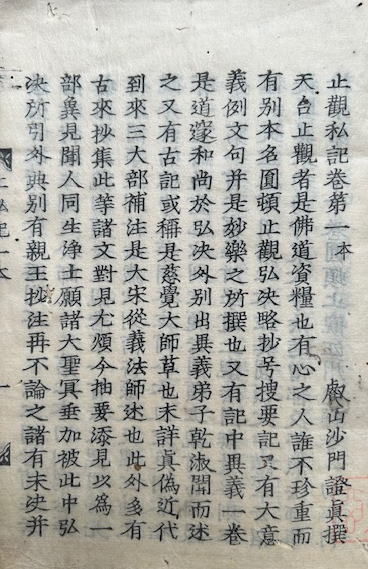 止觀私記卷第一本 叡山沙門證眞撰
天台止觀者是佛道資糧也有心之人誰不珍重而
有別本名圓頓止觀弘決略抄号搜要記又有大意
義例文句并是妙樂之所撰也又有記中異義一卷
是道邃和尚於弘決外別出異義弟子乾淑聞而述
之又有古記或稱是慈覺大師草也未詳眞偽近代
到來三大部補注是大宋從義法師述也此外多有
古來抄集此等諸文對見尤煩今抄要添見以爲一
部兾見聞人同生浄土願諸大聖冥垂加被此中弘
决所引外典別有親王抄注再不論之諸有未决并
止私記一本 一